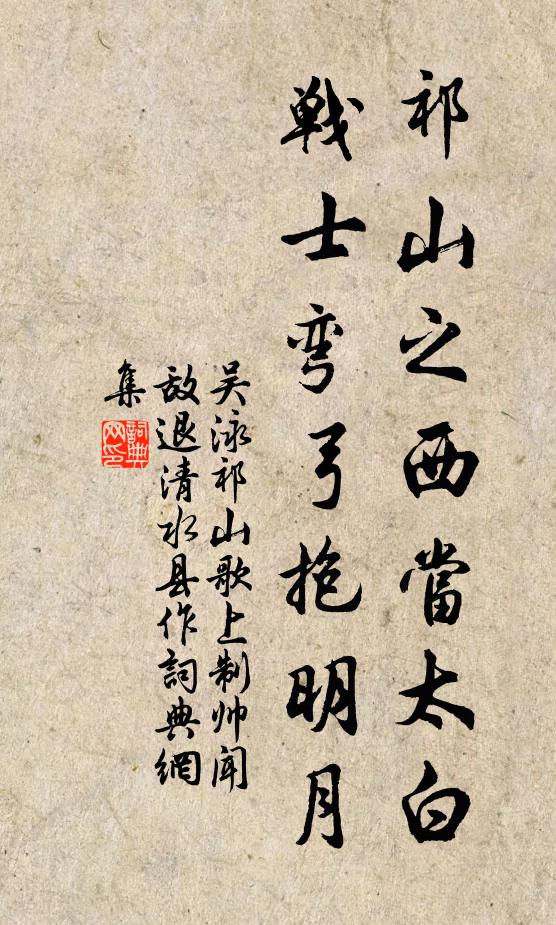 祁山之西當太白
戰士弯弓抱明月
吴泳祁山歌上制帅聞
敌退清水县作詞典網
集
詞典
网印